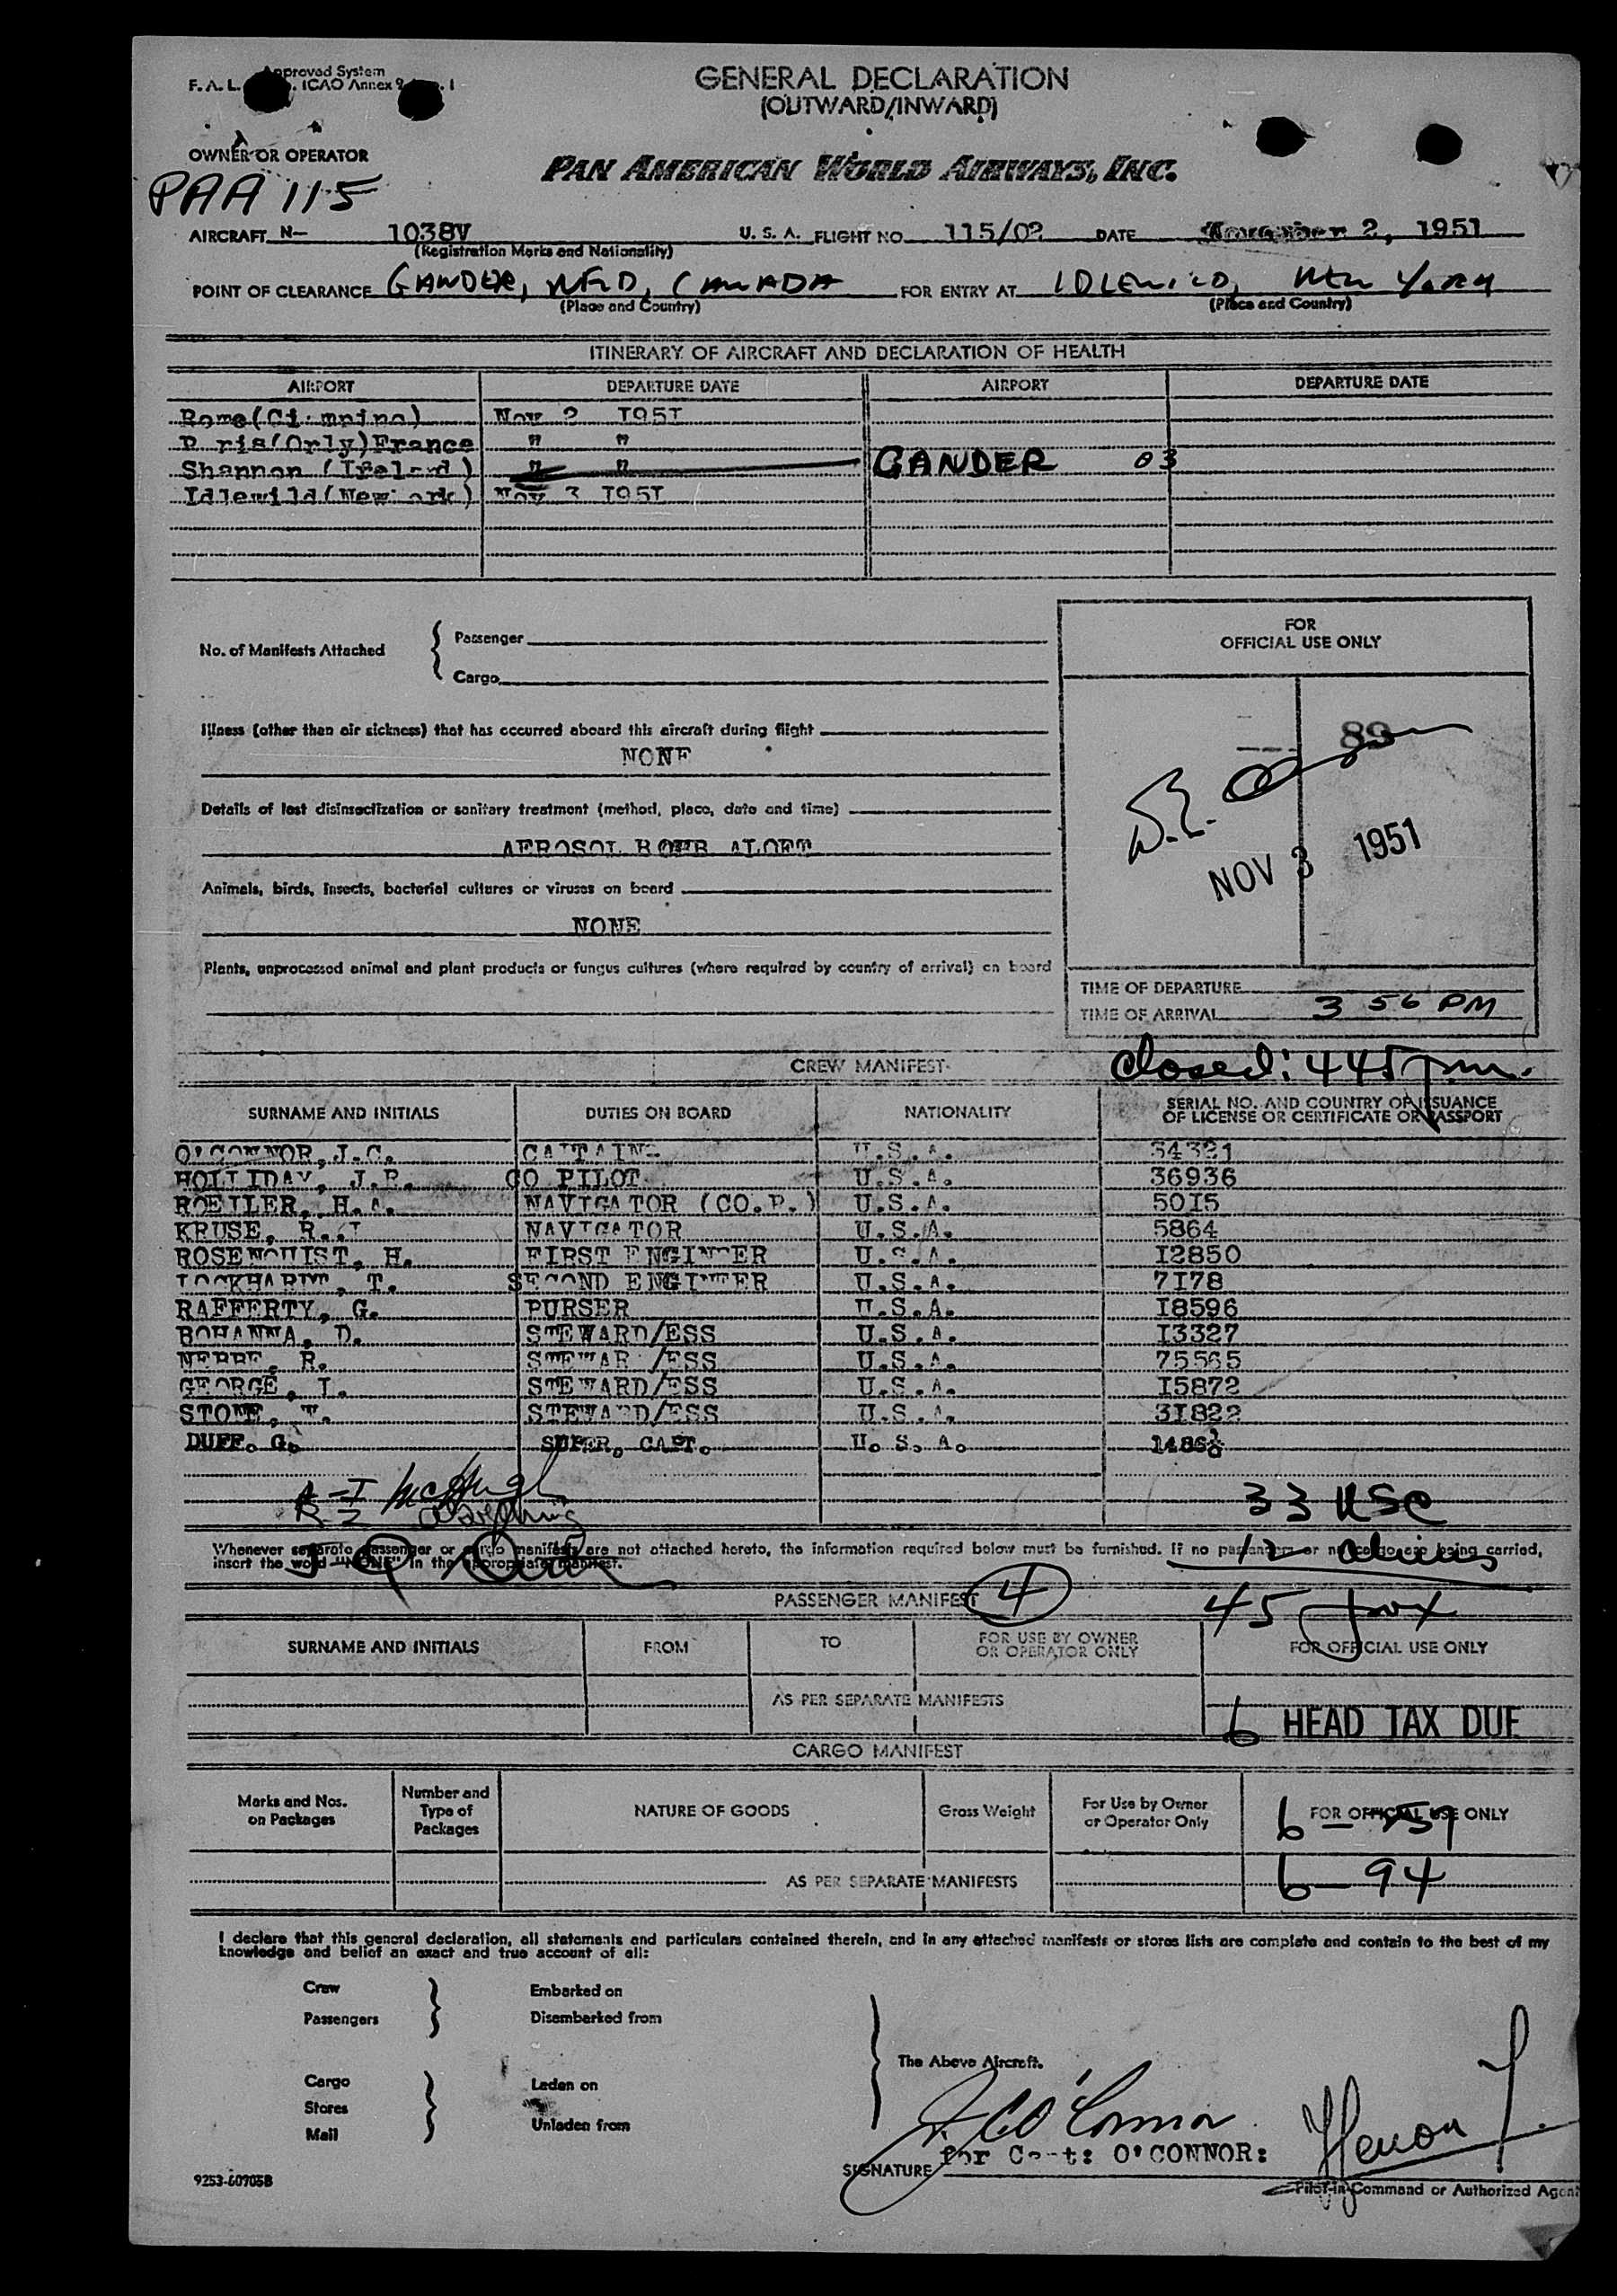 Approved System
F. A. L. ICAO Annex 9
GENERAL DECLARATION
(OUTWARD/INWARD)
OWNER OR OPERATOR
PAN AMERICAN WORLD AIRWAYS, INC.
PAA 115
AIRCRAFT N- 1038V U. S. A. FLIGHT NO. 115/02 DATE November 2, 1951
(Registration Marks and Nationality)
POINT OF CLEARANCE GANDER, NFLD, CANADA FOR ENTRY AT IDLEWILD, NEW YORK
(Place and Country) (Place and Country)
ITINERARY OF AIRCRAFT AND DECLARATION OF HEALTH
AIRPORT DEPARTURE DATE AIRPORT DEPARTURE DATE
Rome(Ci mpino) Nov 2 I95I
P ris(Orly)France " "
Shannon (Ireland) " " GANDER 03
Idlewild(New ork) Nov 3 I95I
No. of Manifests Attached
Passenger
Cargo
FOR
OFFICIAL USE ONLY
Illness (other than air sickness) that has occurred aboard this aircraft during flight
NONE
89
Details of last disinsectization or sanitary treatment (method, place, date and time)
AEROSOL BOMB ALOFT
NOV 3 1951
Animals, birds, insects, bacterial cultures or viruses on board
NONE
Plants, unprocessed animal and plant products or fungus cultures (where required by country of arrival) on board
TIME OF DEPARTURE
TIME OF ARRIVAL 3 56 PM
CREW MANIFEST
closed: 445 pm.
SURNAME AND INITIALS DUTIES ON BOARD NATIONALITY SERIAL NO. AND COUNTRY OF ISSUANCE
OF LICENSE OR CERTIFICATE OR PASSPORT
O'CONNOR, J.C. CAPTAIN- U.S.A. 34321
HOLLIDAY, J.R. CO PILOT U.S.A. 36936
ROEILER, H.A. NAVIGATOR (CO.P.) U.S.A. 50I5
KRUSE, R. NAVIGATOR U.S.A. 5864
ROSENQUIST, H. FIRST ENGINEER U.S.A. I2850
LOCKHARDT, T. SECOND ENGINEER U.S.A. 7I78
RAFFERTY, G. PURSER U.S.A. I8596
BOHANNA, D. STEWARD/ESS U.S.A. I3327
R. STEWAR /ESS U.S.A. 75565
GEORGE, I. STEWARD/ESS U.S.A. I5872
STONE, STEWARD/ESS U.S.A. 3I822
DUFF. G. SUPER. CAPT. U. S. A. 1486
33 USC
Whenever separate passenger or cargo manifests are not attached hereto, the information required below must be furnished. If no passengers or no cargo are being carried,
insert the word "NONE" in the appropriate manifest.
12 aliens
PASSENGER MANIFEST 4 45 pax
SURNAME AND INITIALS FROM TO FOR USE BY OWNER
OR OPERATOR ONLY FOR OFFICIAL USE ONLY
AS PER SEPARATE MANIFESTS
6 HEAD TAX DUE
CARGO MANIFEST
Marks and Nos.
on Packages Number and
Type of
Packages NATURE OF GOODS Gross Weight For Use by Owner
or Operator Only FOR OFFICIAL USE ONLY
AS PER SEPARATE MANIFESTS 6-94
I declare that this general declaration, all statements and particulars contained therein, and in any attached manifests or stores lists are complete and contain to the best of my
knowledge and belief an exact and true account of all:
Crew Embarked on
Passengers Disembarked from
The Above Aircraft.
Cargo Laden on
Stores
Mail Unladen from
J. C. O'Connor
for Capt: O'CONNOR:
SIGNATURE
Pilot-in-Command or Authorized Agent
9253-60705B